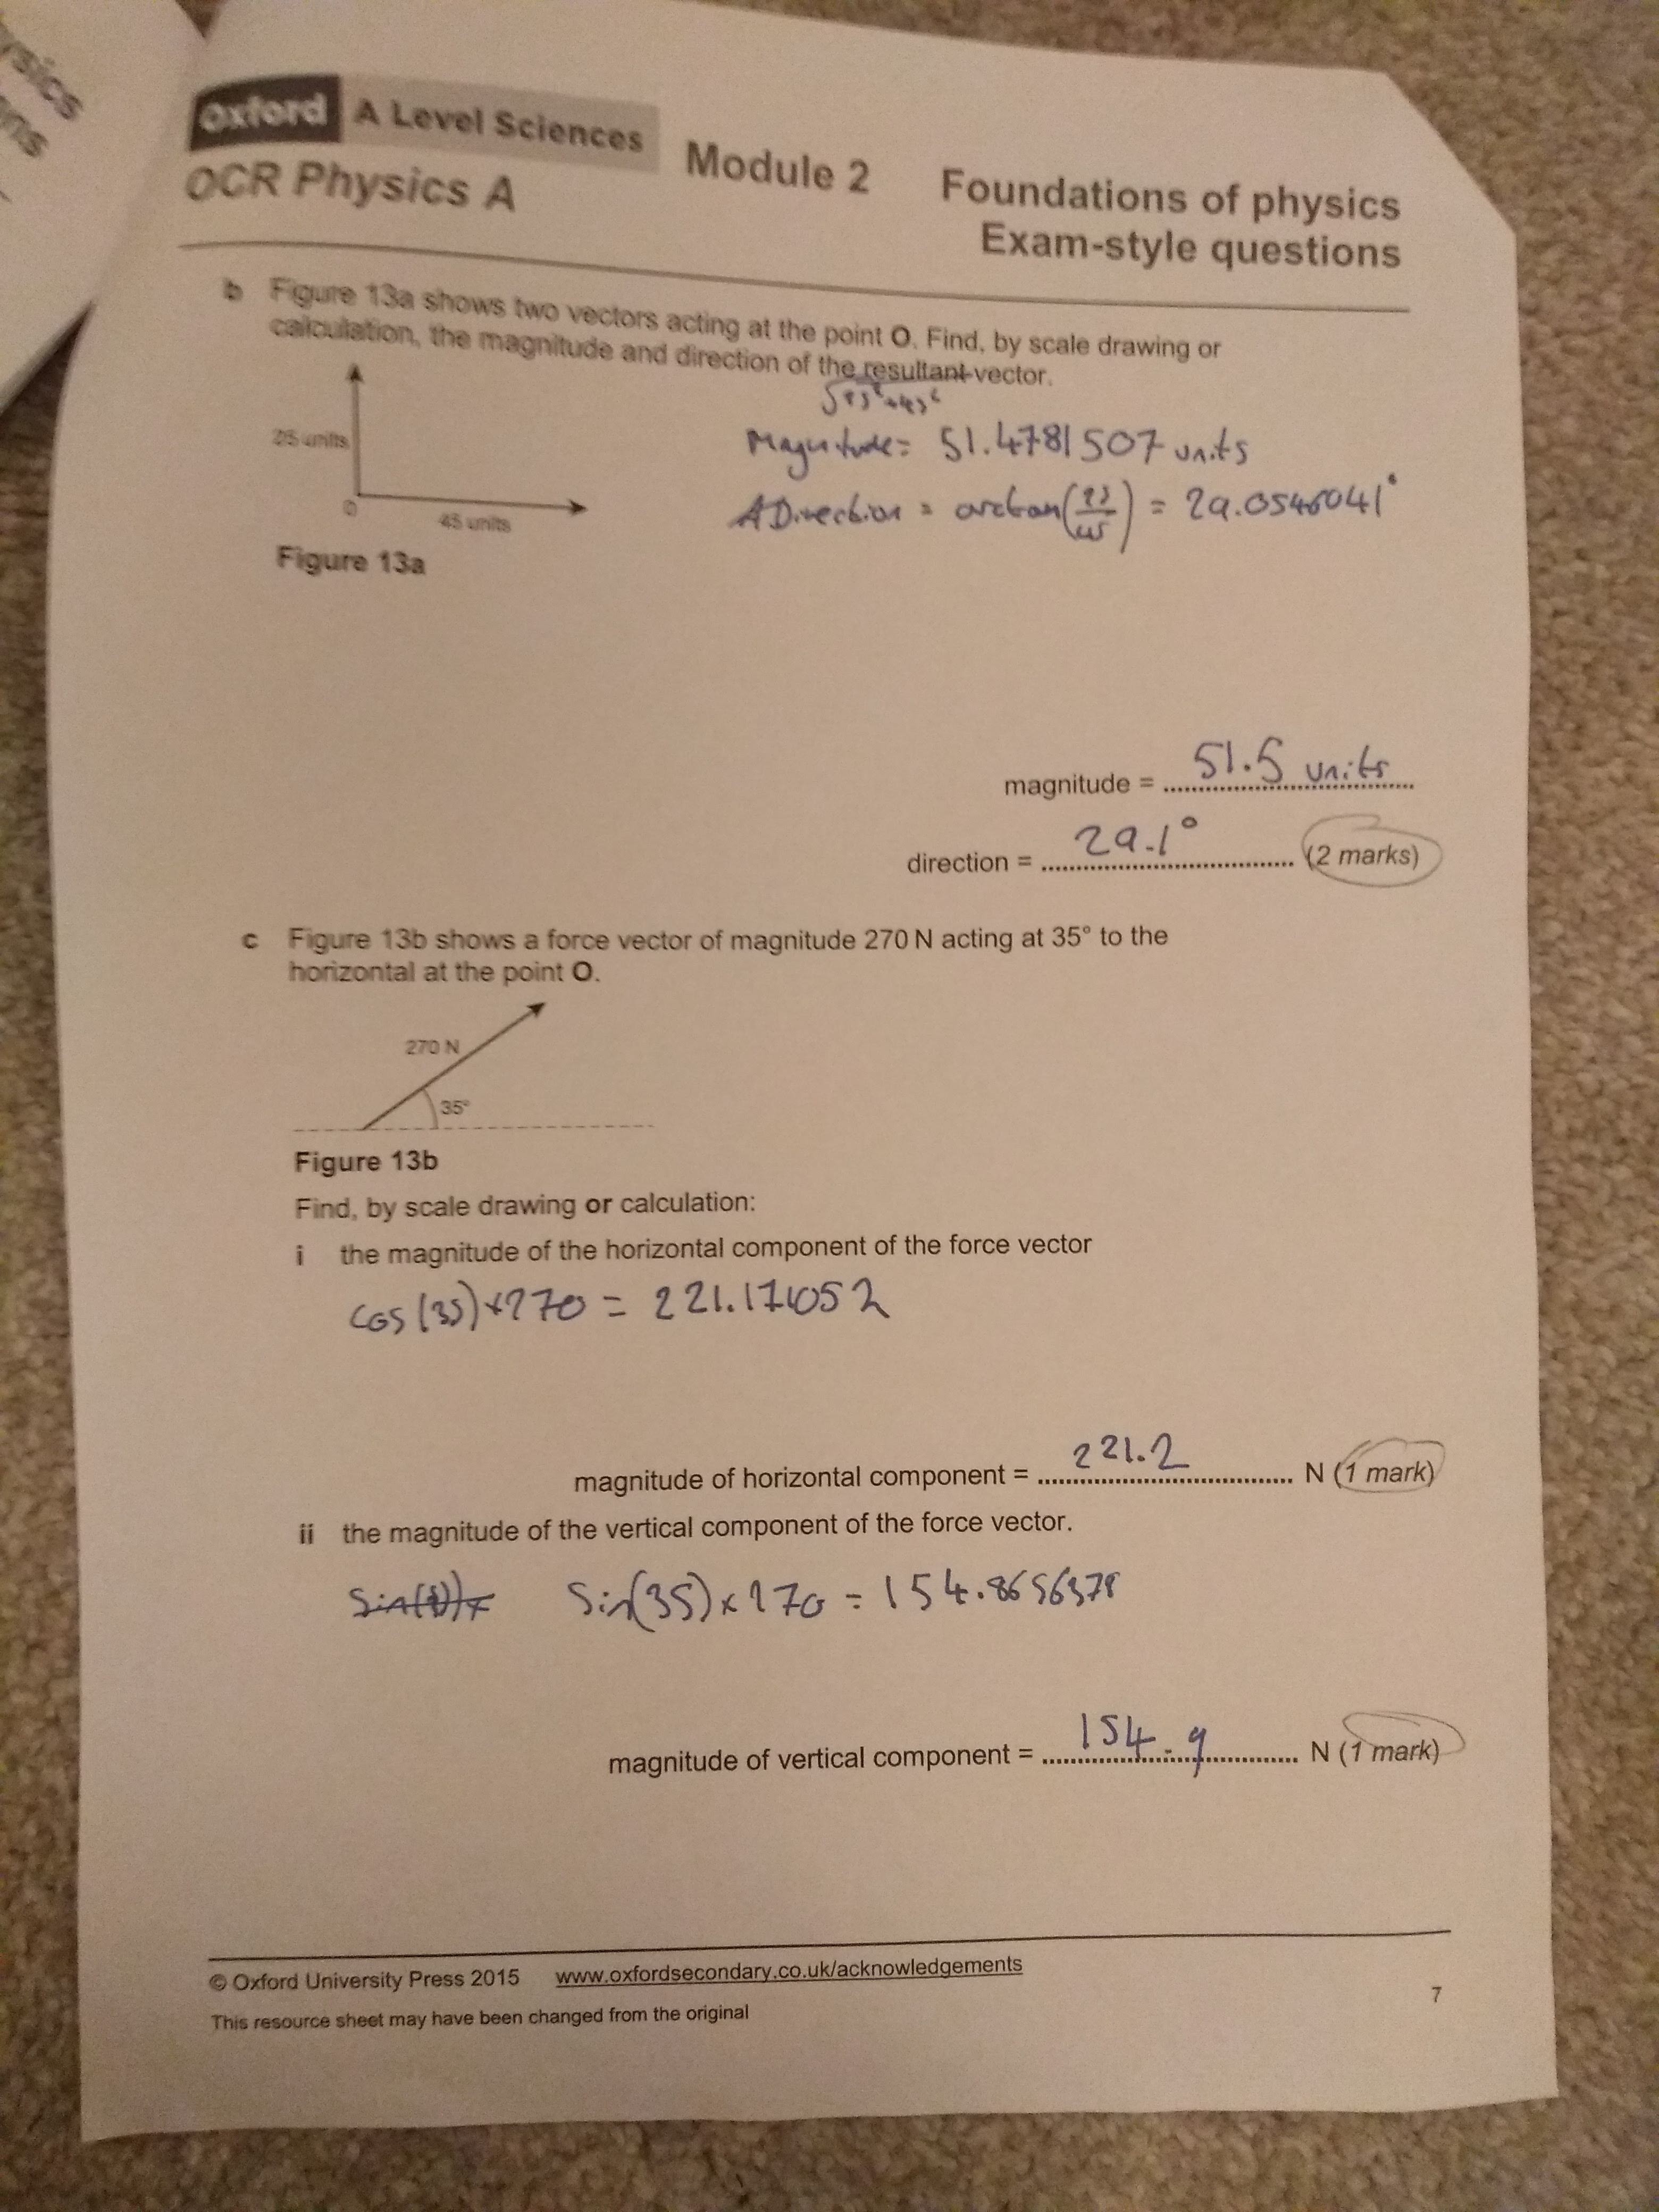 sics
ns
Oxford A Level Sciences
OCR Physics A
Module 2
Foundations of physics
Exam-style questions
b Figure 13a shows two vectors acting at the point O. Find, by scale drawing or
calculation, the magnitude and direction of the resultant vector.
25 units
O
45 units
Figure 13a
√25²+45²
Magnitude = 51.4781507 units
Direction = arctan(25/45) = 29.0546041°
magnitude = 51.5 units
direction = 29.1° (2 marks)
c Figure 13b shows a force vector of magnitude 270 N acting at 35° to the
horizontal at the point O.
270 N
35°
Figure 13b
Find, by scale drawing or calculation:
i the magnitude of the horizontal component of the force vector
cos(35)×270 = 221.171052
magnitude of horizontal component = 221.2 N (1 mark)
ii the magnitude of the vertical component of the force vector.
Sin(35)×270 = 154.8656378
magnitude of vertical component = 154.9 N (1 mark)
© Oxford University Press 2015 www.oxfordsecondary.co.uk/acknowledgements
This resource sheet may have been changed from the original
7